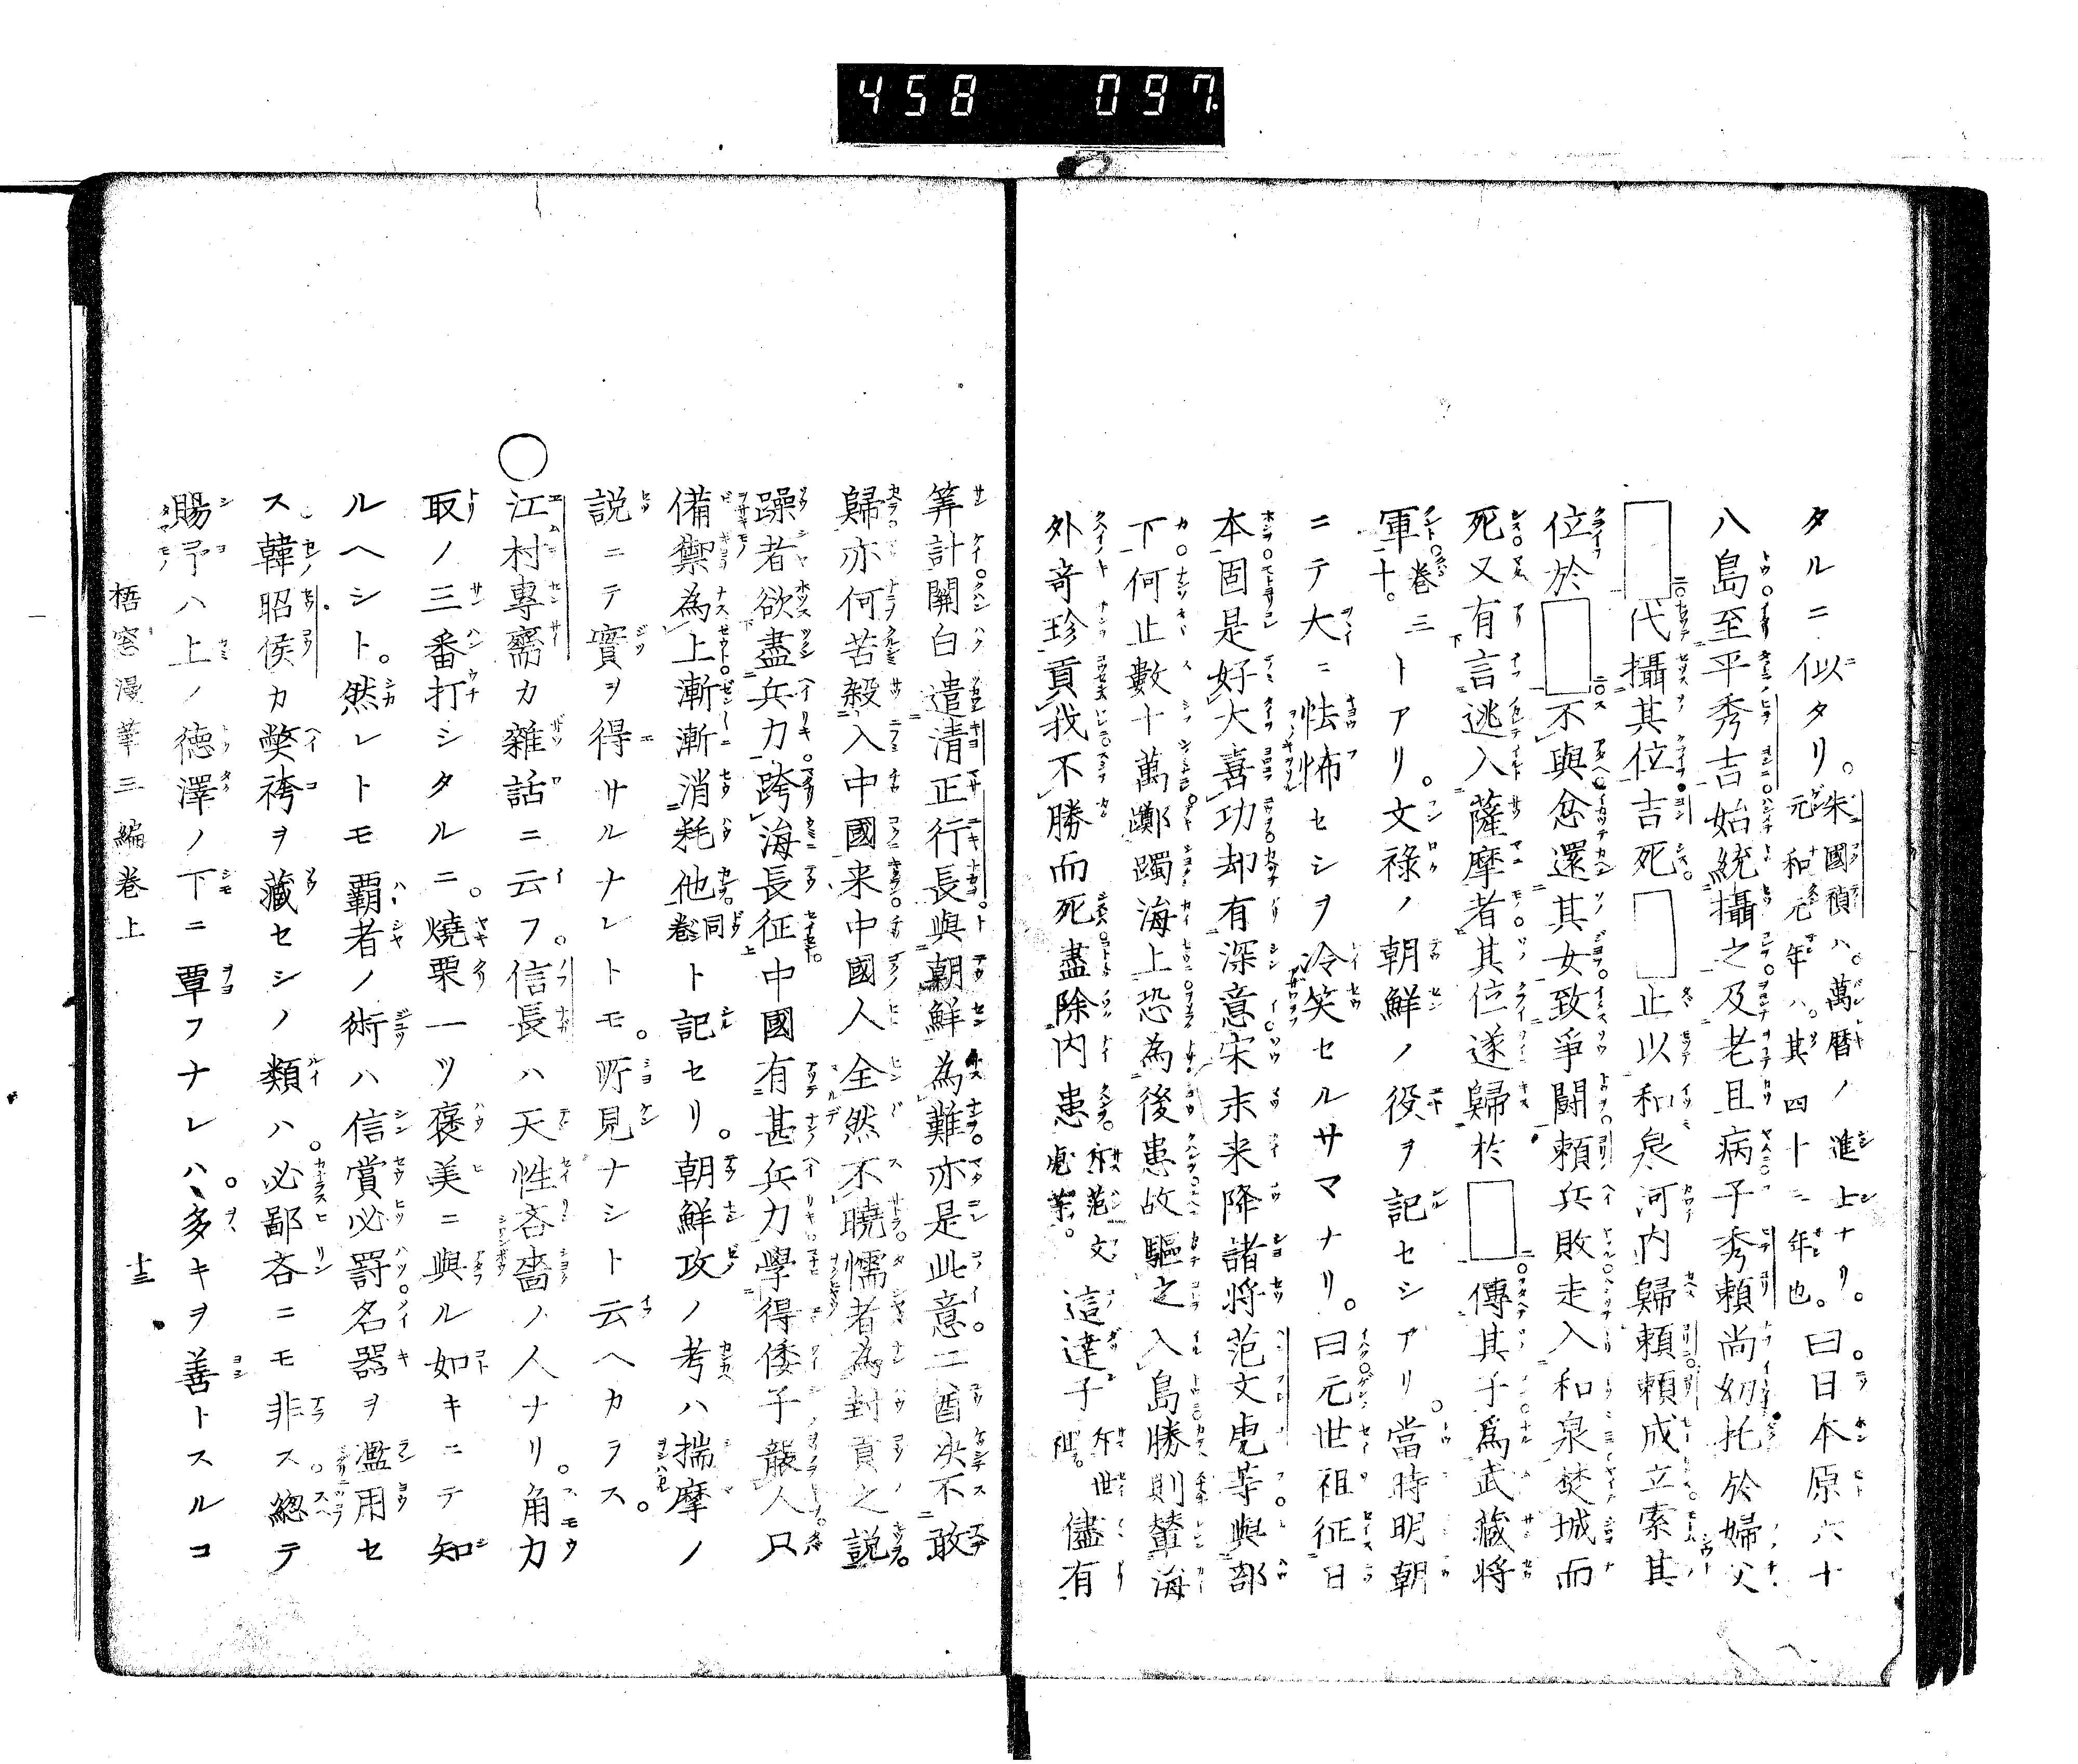 458 097.
タルニ似タリ。朱國禎ハ。萬暦ノ進上ナリ。曰。日本原六十
元和元年ハ。其四十二年也。
八島至平秀吉始統攝之及老且病子秀頼尚幼托於婦父
代攝其位吉死。止以和泉河内歸頼頼成立索其
位於不與忿還其女致爭闘頼兵敗走入和泉焚城而
死又有言逃入薩摩者其位遂歸於傳其子爲武藏将
軍卷三十。トアリ。文禄ノ朝鮮ノ役ヲ記セシアリ。當時明朝
ニテ大ニ怯怖セシヲ冷笑セルサマナリ。曰元世祖征日
本固是好大喜功却有深意宋末来降諸将范文虎等與部
下何止數十萬躑躅海上恐為後患故驅之入島勝則輦海
外奇珍貢我不勝而死盡除内患斥范文虎等。這達子斥世祖。儘有
筭計關白遣清正行長與朝鮮為難亦是此意二酋决不敢
歸亦何苦殺入中國来中國人全然不曉懦者為封貢之説
躁者欲盡兵力跨海長征中國有甚兵力學得倭子襲人只
備禦為上漸漸消耗他同卷ト記セリ。朝鮮攻ノ考ハ揣摩ノ
説ニテ實ヲ得サルナレトモ。所見ナシト云ヘカラス。
○江村專齋カ雜話ニ云フ。信長ハ天性吝嗇ノ人ナリ。角力
取ノ三番打シタルニ。燒栗一ツ褒美ニ與ル如キニテ知
ルヘシト。然レトモ覇者ノ術ハ信賞必罸名器ヲ濫用セ
ス。韓昭侯カ獘袴ヲ藏セシノ類ハ。必鄙吝ニモ非ス。總テ
賜予ハ上ノ徳澤ノ下ニ覃フナレハ、多キヲ善トスルコ
梧窓漫筆三編卷上
十三